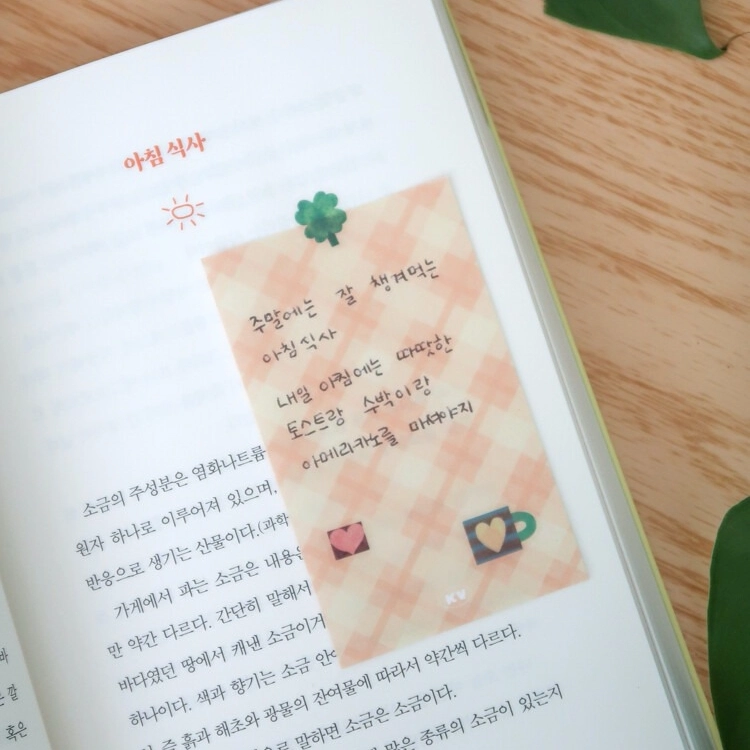 아침 식사
주말에는 잘 챙겨먹는
아침식사
내일 아침에는 따땃한
토스트랑 수박이랑
아메리카노를 마셔야지
KV
소금의 주성분은 염화나트륨
원자 하나로 이루어져 있으며,
반응으로 생기는 산물이다.(과학
가게에서 파는 소금은 내용은
만 약간 다르다. 간단히 말해서
바다였던 땅에서 캐낸 소금이거
하나이다. 색과 향기는 소금 안에 따라서 약간씩 다르다.
즉 흙과 해초와 광물의 잔여물에
으로 말하면 소금은 소금이다.
많은 종류의 소금이 있는지
바
는 깔
혹은